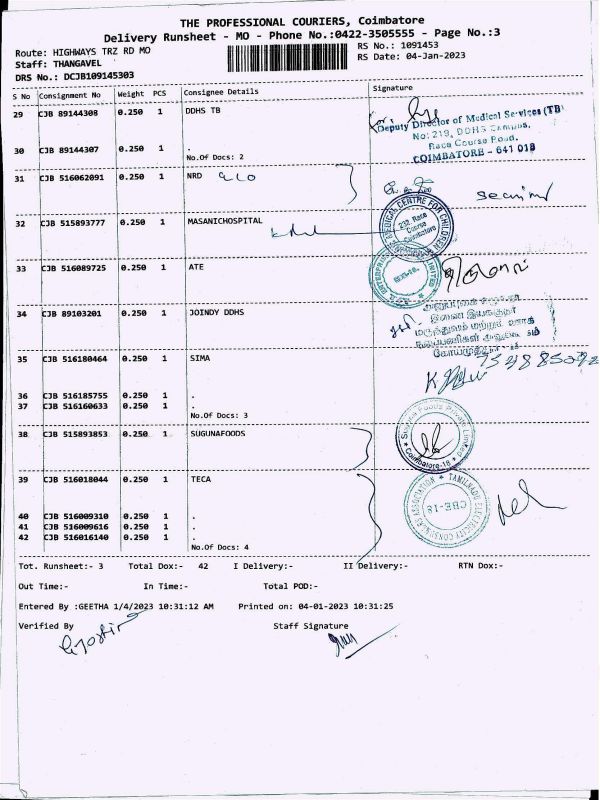 THE PROFESSIONAL COURIERS, Coimbatore
Delivery Runsheet - MO - Phone No.:0422-3505555 - Page No.:3
Route: HIGHWAYS TRZ RD MO
RS No.: 1091453
Staff: THANGAVEL
RS Date: 04-Jan-2023
DRS No.: DCJB109145303
S No Consignment No Weight PCS Consignee Details Signature
29 CJB 89144308 0.250 1 DDHS TB
Deputy Director of Medical Services (TB)
No: 219, DDHS Campus,
Race Course Road,
COIMBATORE - 641 018
30 CJB 89144307 0.250 1 .
No.Of Docs: 2
31 CJB 516062091 0.250 1 NRD
32 CJB 515893777 0.250 1 MASANICHOSPITAL
MEDICAL CENTRE FOR CHILDREN
232 Race
Course
Coimbatore
33 CJB 516089725 0.250 1 ATE
34 CJB 89103201 0.250 1 JOINDY DDHS
35 CJB 516180464 0.250 1 SIMA
36 CJB 516185755 0.250 1 .
37 CJB 516160633 0.250 1 .
No.Of Docs: 3
38 CJB 515893853 0.250 1 SUGUNAFOODS
Suguna Foods Private Limited
Coimbatore-18
39 CJB 516018044 0.250 1 TECA
TAMILNADU ELECTRICITY CONSUMERS ASSOCIATION
CBE-18
40 CJB 516009310 0.250 1 .
41 CJB 516009616 0.250 1 .
42 CJB 516016140 0.250 1 .
No.Of Docs: 4
Tot. Runsheet:- 3 Total Dox:- 42 I Delivery:- II Delivery:- RTN Dox:-
Out Time:- In Time:- Total POD:-
Entered By :GEETHA 1/4/2023 10:31:12 AM Printed on: 04-01-2023 10:31:25
Verified By Staff Signature